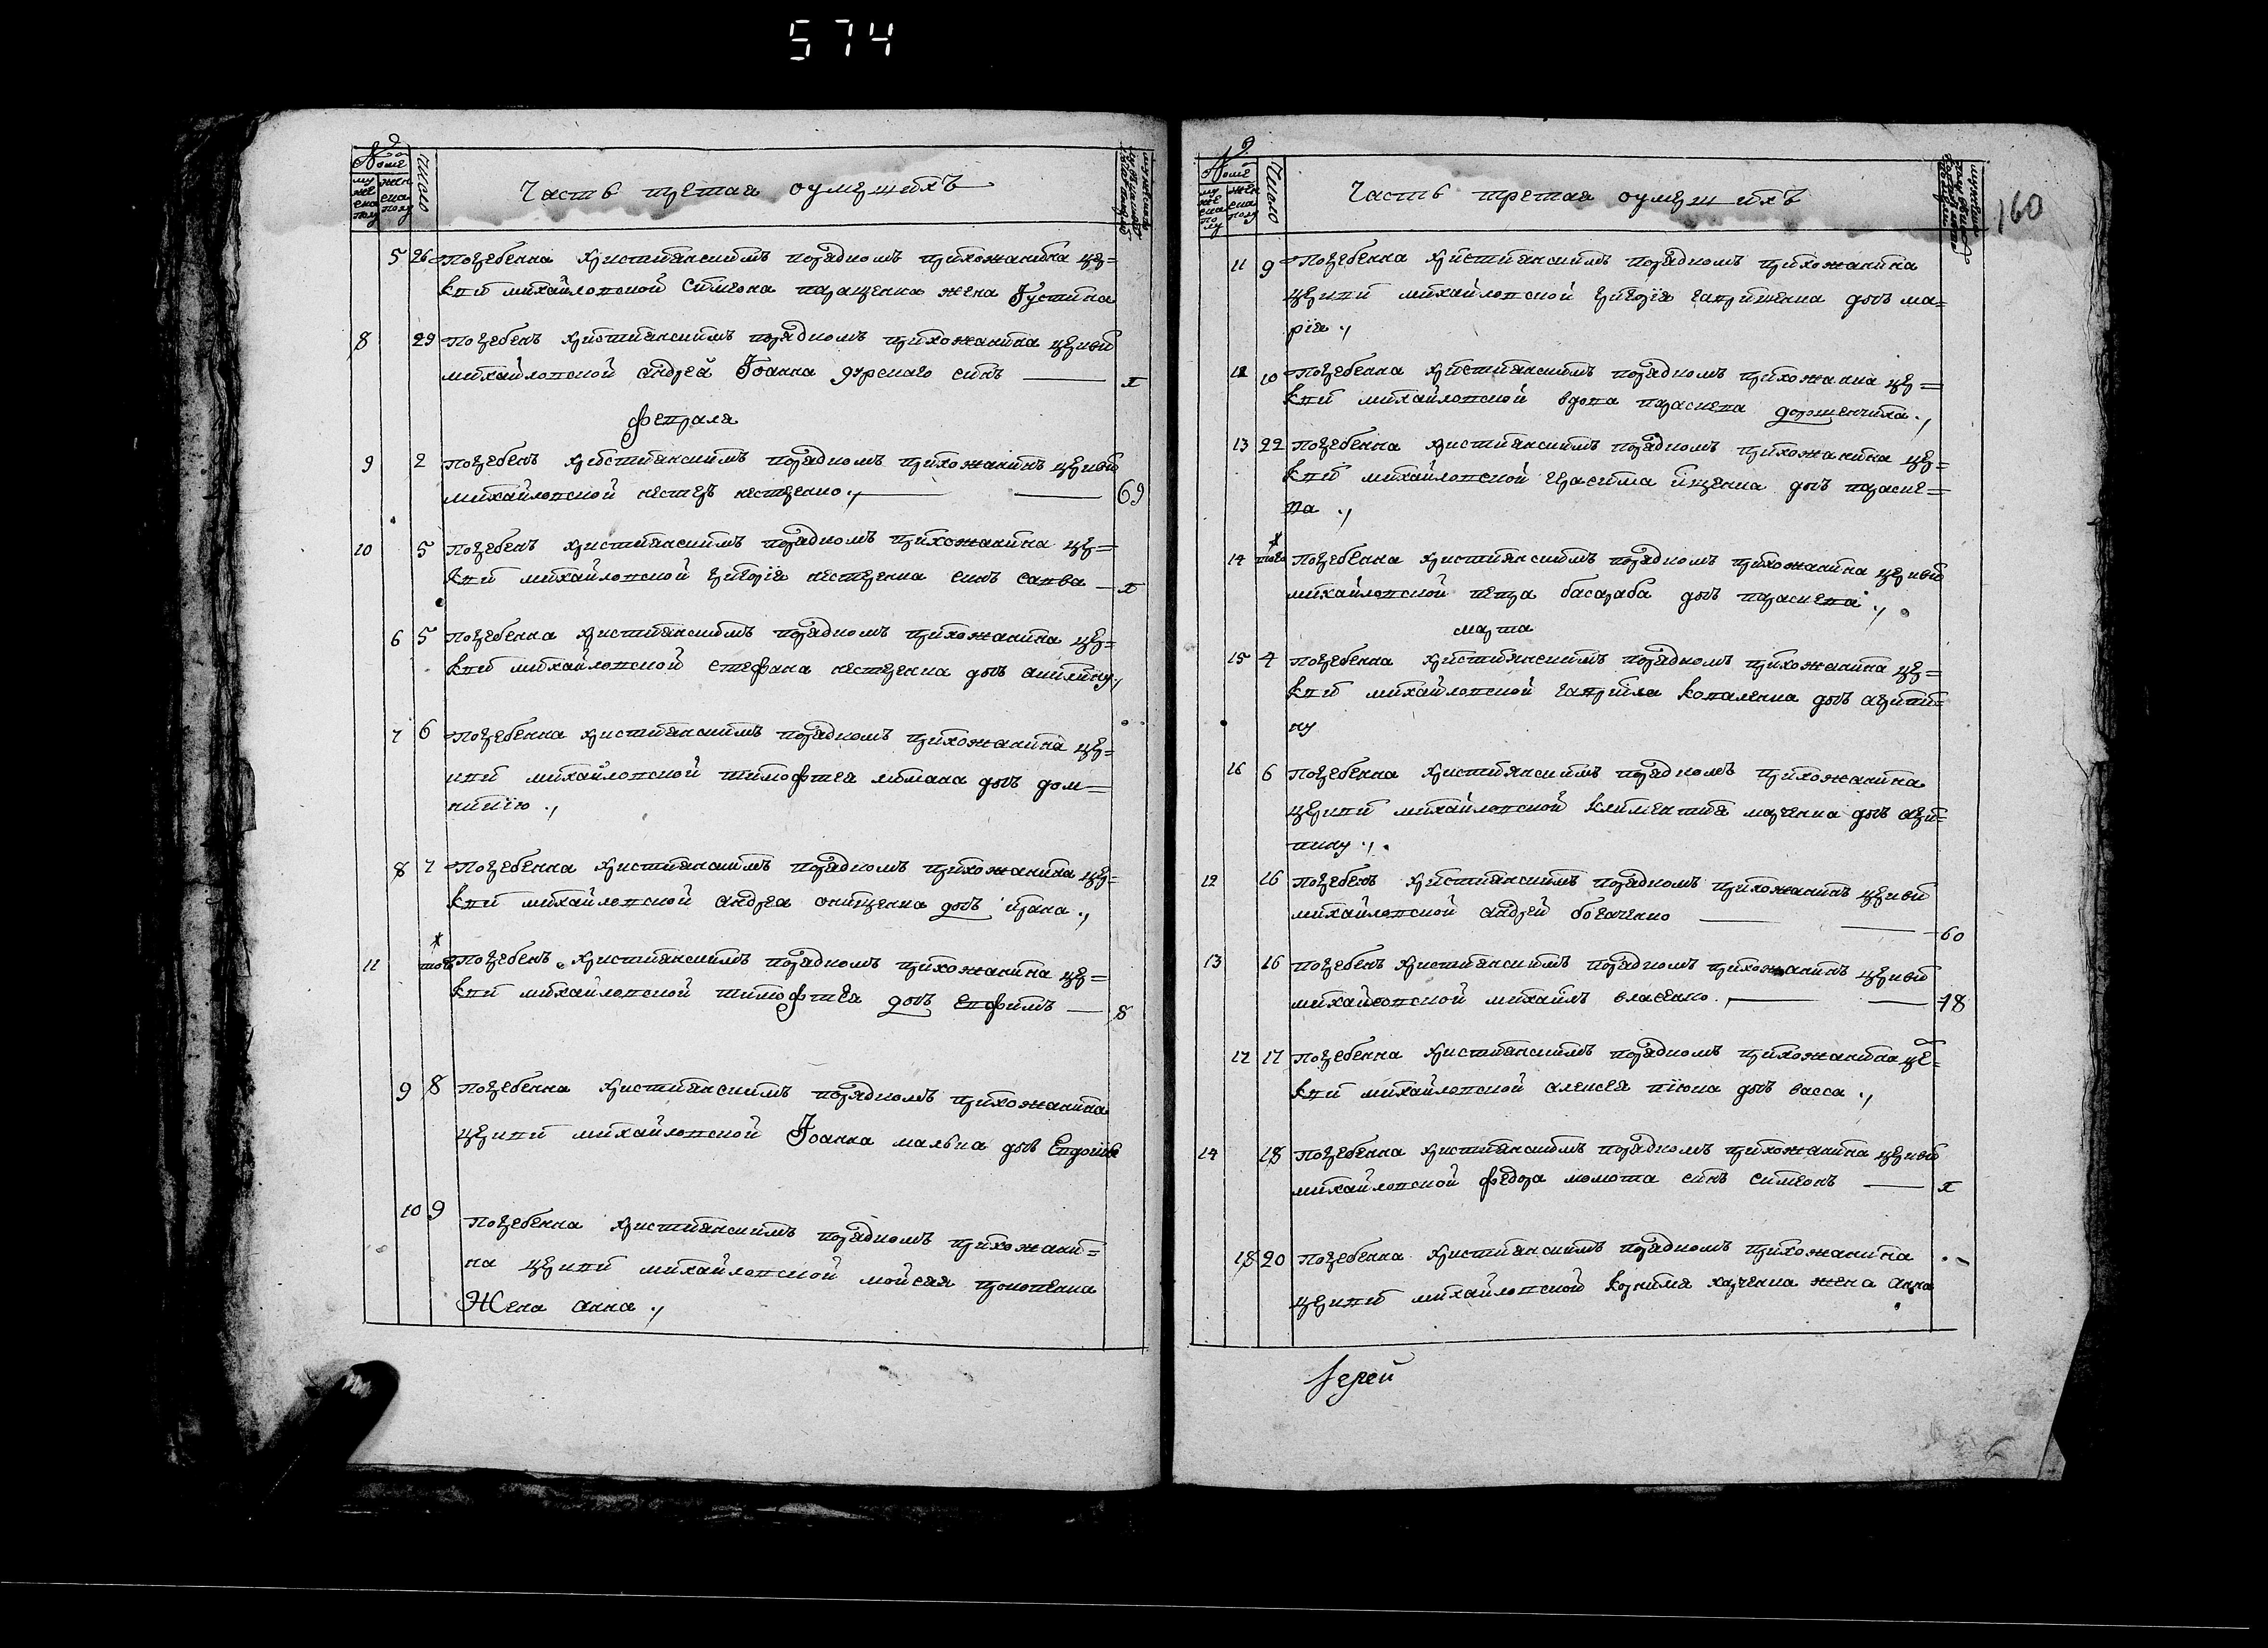 574
№
Числo
муже
ска
полу
женска
полу
Часть третая оумершихъ
5 26 Погребенна христианскимъ порядкомъ прихожанина цер=
кви михайловской Симеона паращенка жена Густина
8 29 Погребенъ христианскимъ порядкомъ прихожанина церкви
михайловской андрей Іоанна сынъ
феврала
9 2 Погребенъ христианскимъ порядкомъ прихожанинъ церкви
михайловской нестеръ нестеренко ., 69
10 5 Погребенъ христианскимъ порядкомъ прихожанина цер=
кви михайловской григорія нестеренка синъ савва
6 5 Погребенна христианскимъ порядкомъ прихожанина цер=
кви михайловской стефана нестеренка дочъ акилину.,
7 6 Погребенна христианскимъ порядкомъ прихожанина цер=
кви михайловской тимофтея лимана дочъ дом=
никию .,
8 7 Погребенна христианскимъ порядкомъ прихожанина цер=
кви михайловской андрея онищенка дочъ ирана .,
11 того Погребенъ христианскимъ порядкомъ прихожанина цер=
кви михайловской тимофтея дочъ евфимъ 8
9 8 Погребенна христианскимъ порядкомъ прихожанина
церкви михайловской Іоанна малька дочъ Евдокия
10 9 Погребенна христианскимъ порядкомъ прихожани=
на церкви михайловской мойсея прокопенка
Жена анна .,
160
№
Число
Часть третая оумершихъ
11 9 Погребенна христианскимъ порядкомъ прихожанина
церкви михайловской григорія гавришенка дочъ ма=
рія .,
12 10 Погребенна христианскимъ порядкомъ прихожанна цер=
кви михайловской вдова параскева дорошенчиха .,
13 22 Погребенна христианскимъ порядкомъ прихожанина цер=
кви михайловской герасима ищенка дочъ параске=
ва .,
14 того Погребенна христианскимъ порядкомъ прихожанина церкви
михайловской петра басараба дочъ параскева .,
марта
15 4 Погребенна христианскимъ порядкомъ прихожанина цер=
кви михайловской гавриіла коваленка дочъ агрипи=
ну
16 6 Погребенна христианскимъ порядкомъ прихожанина
церкви михайловской климентия марченка дочъ агри=
пину .,
12 16 Погребенъ христианскимъ порядкомъ прихожанинъ церкви
михайловской андрей богаченко 60
13 16 Погребенъ христианскимъ порядкомъ прихожанинъ церкви
михайловской михаилъ власенко ., 48
17 17 Погребенна христианскимъ порядкомъ прихожанина це=
кви михайловской алексея пивна дочъ васса .,
14 18 Погребенна христианскимъ порядкомъ прихожанина церкви
михайловской федора момота синъ симеонъ
18 20 Погребенна христианскимъ порядкомъ прихожанина
церкви михайловской корнилия харченка жена анна
Іерей